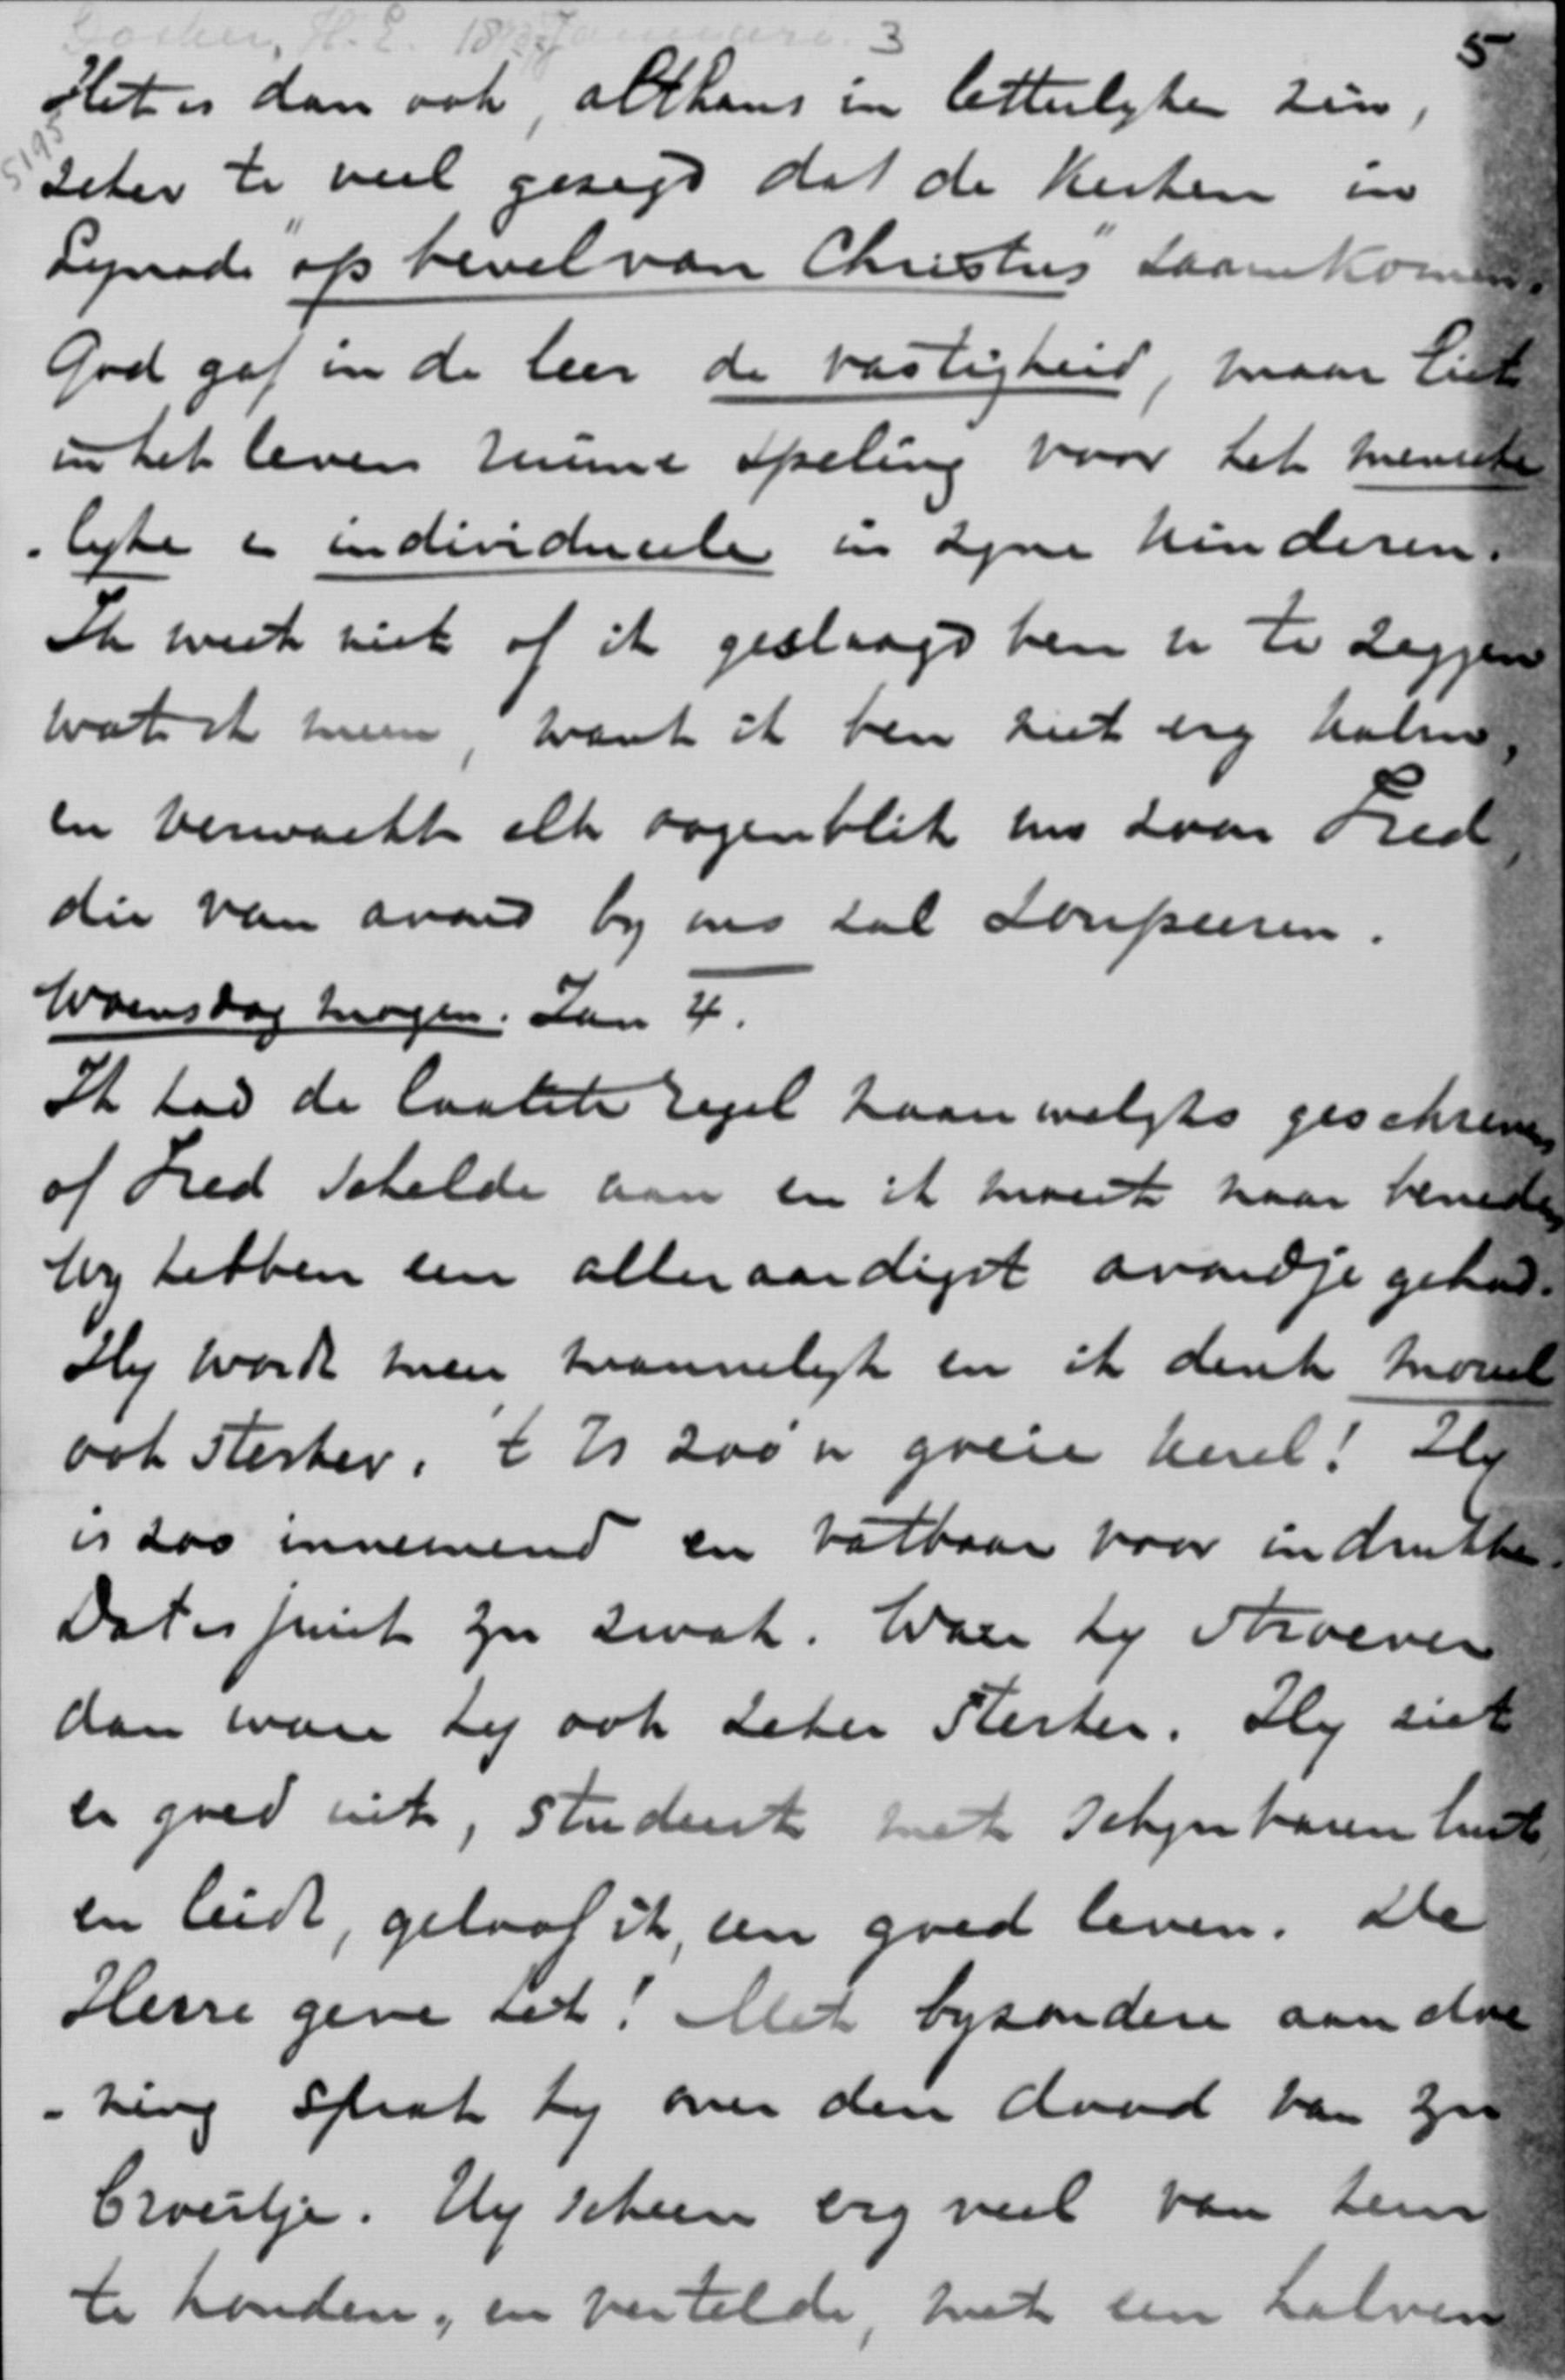 Gosken, H. E. 18 Januari. 3
5
5195
Het is dan ook, althans in letterlyken zin,
zeker te veel gezegd dat de Kerken in
Synode "op bevel van Christus" saamkomen.
God gaf in de leer de vastigheid, maar liet
in het leven ruime speling voor het mensche
-lyke en individueele in zyne kinderen.
Ik weet niet of ik geslaagd ben u te zeggen
wat ik meen, want ik ben niet erg kalm,
en verwacht elk oogenblik ons zoon Fred,
die van avond by ons zal soupeeren.
Woensdag morgen. Jan 4.
Ik had de laatste regel naauwelyks geschreven
of Fred schelde aan en ik moest naar beneden
Wy hebben een alleraardigst avondje gehad.
Hy wordt meer mannelyk en ik denk moreel
ook sterker. 't Is zoo'n goeie kerel! Hy
is zoo innemend en vatbaar voor indrukken.
Dat is juist zyn zwak. Ware hy stroever
dan ware hy ook zeker sterker. Hy ziet
er goed uit, studeert met schynbaren lust,
en leidt, geloof ik, een goed leven. De
Heere geve het! Met byzondere aandoe
-ning sprak hy over den dood van zyn
broertje. Hy scheen erg veel van hem
te houden, en vertelde, met een halven